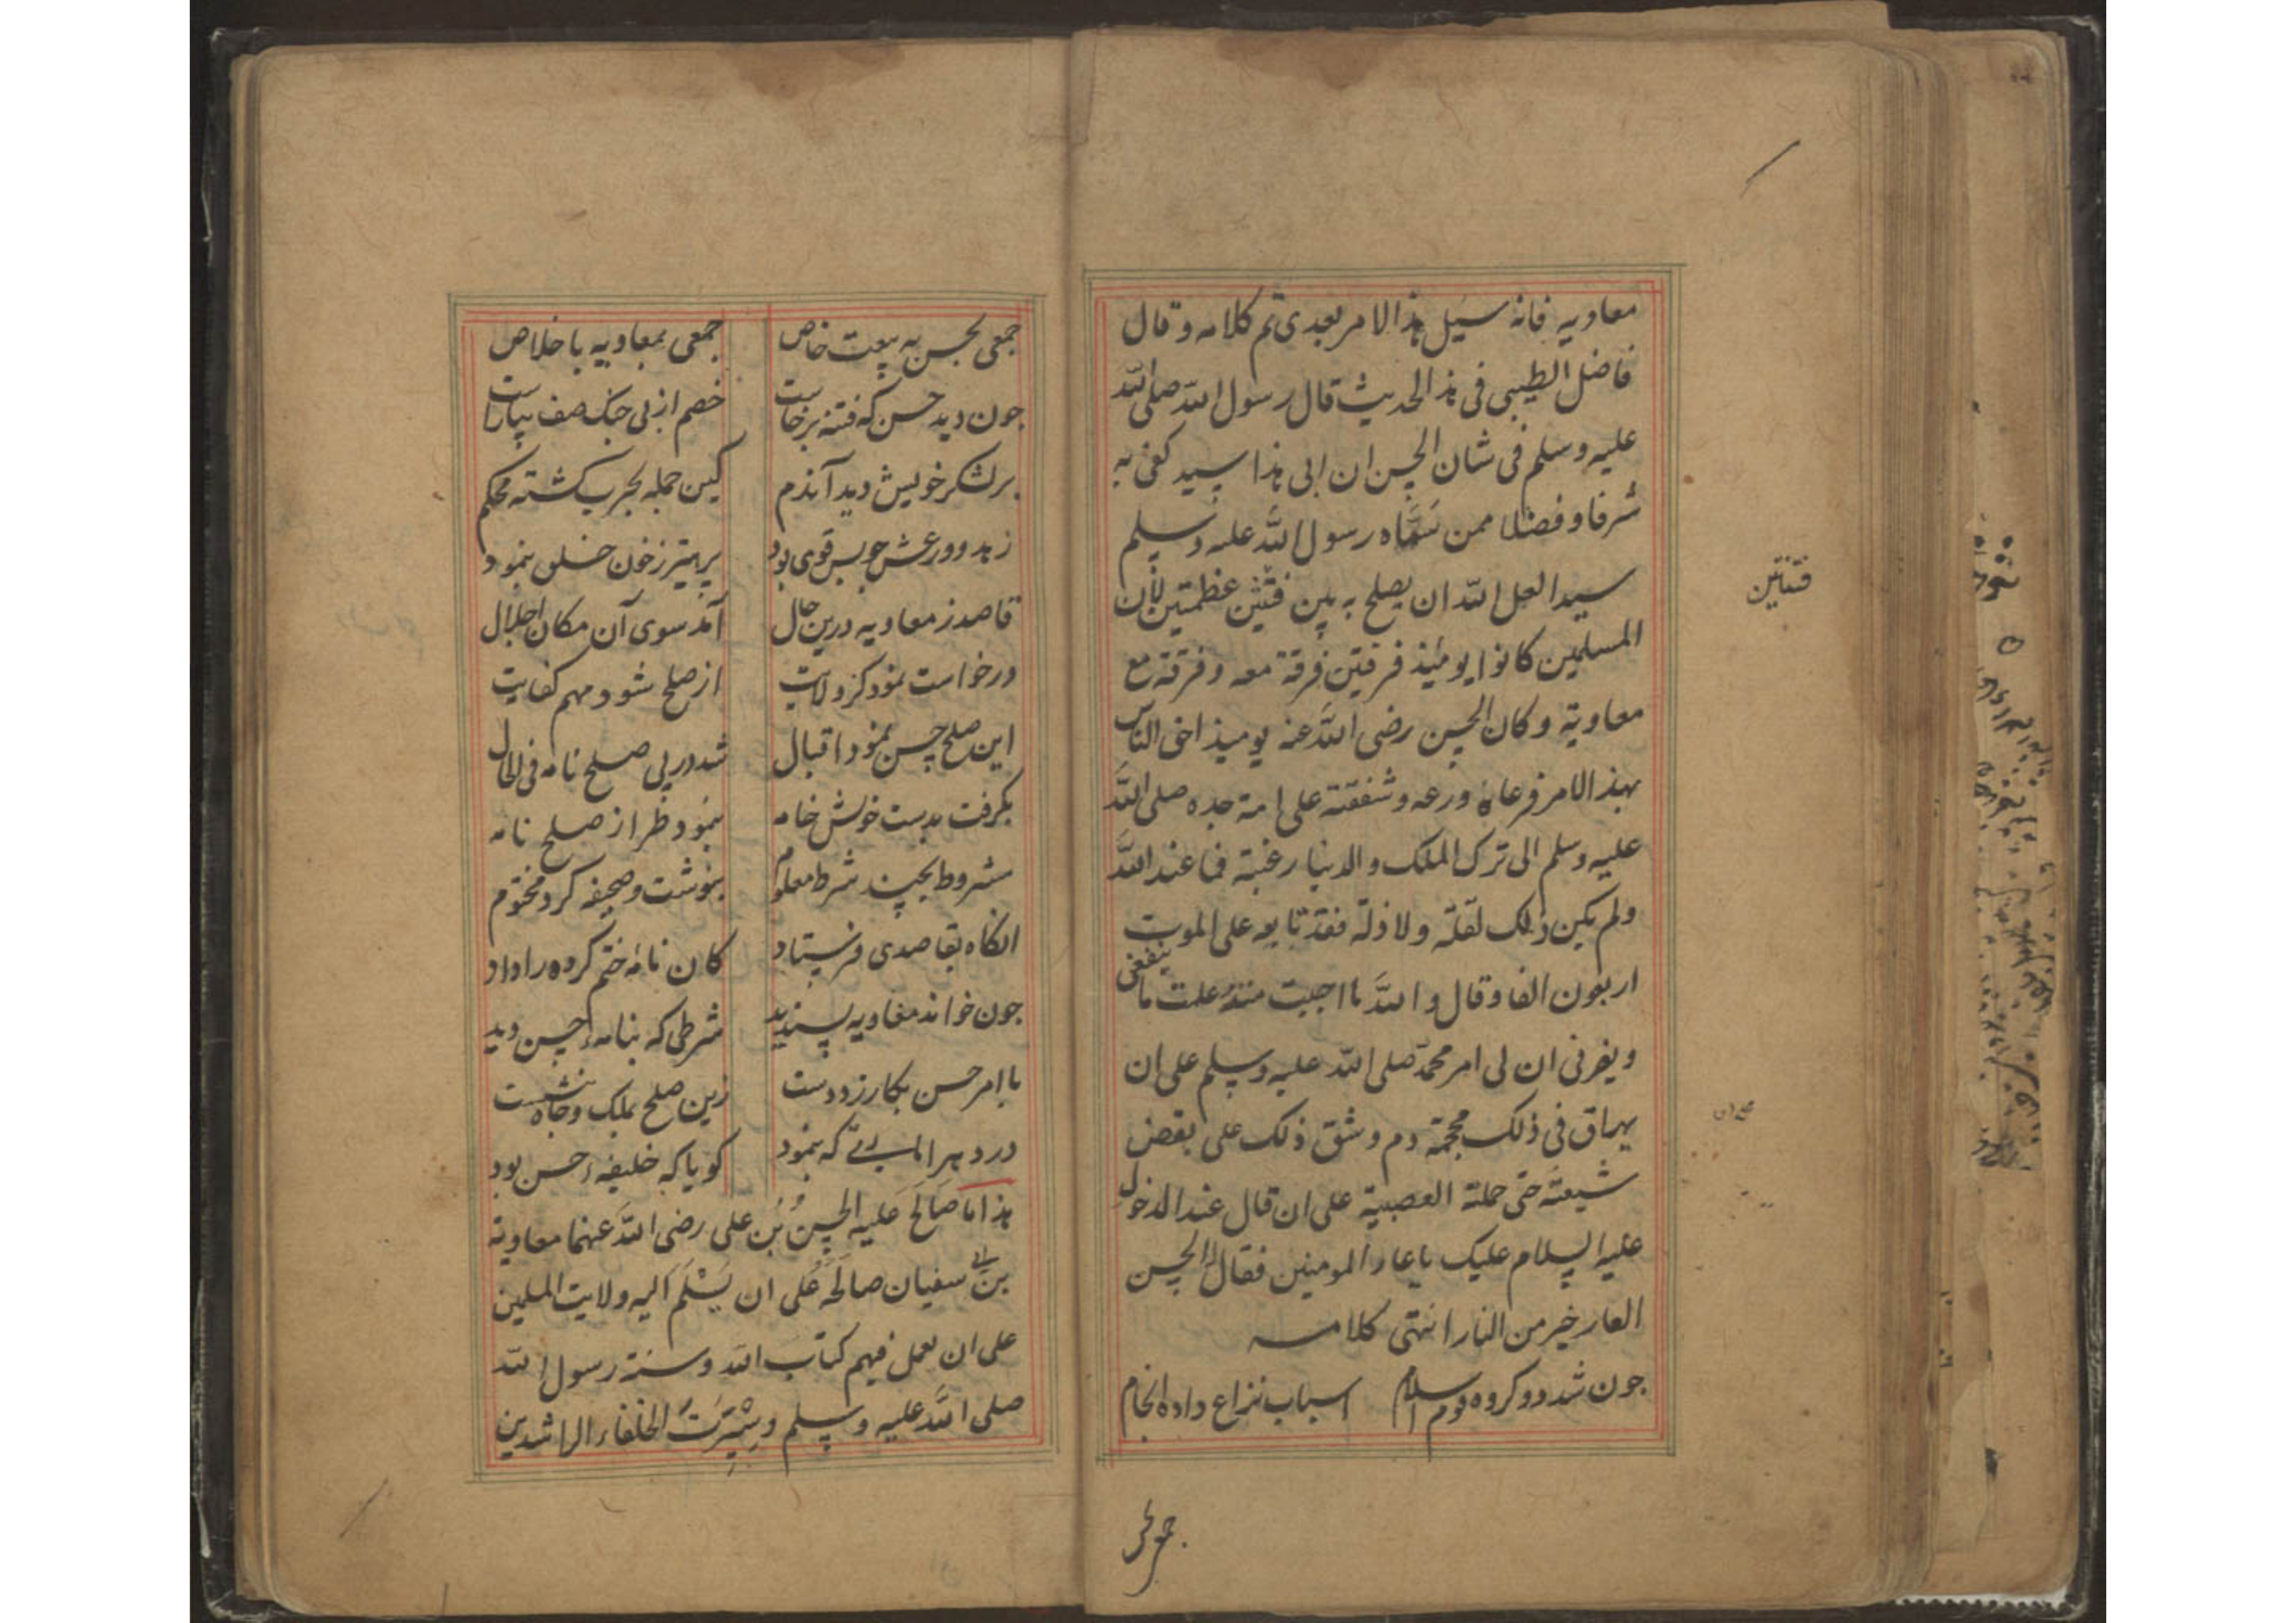 معاویه فانه سیل هذا الامر بعدی تم کلامه و قال
فاضل الطیبی فی هذا الحدیث قال رسول الله صلی الله
علیه وسلم فی شان الحسن ان ابی هذا سید کفی به
شرفا و فضلا ممن سَمَّاه رسول الله علیه وسلم
سیدا لعل الله ان یصلح به بین فئتین عظمتین لأن
المسلمین کانوا یومئذ فرقتین فرقة معه وفرقة مع
معاویة وکان الحسن رضی الله عنه یومیذ احق الناس
بهذا الامر فرعاه ورعه وشفقته علی امة جده صلی الله
علیه وسلم الی ترک الملک والدنیا رغبة فما عند الله
ولم یکن ذلک لقلّة ولا ذلّة فقد تابعه علی الموت
اربعون الفا وقال والله ما احببت منذ علمت ما ینفعنی
ویضرنی ان لی امر محمد صلی الله علیه وسلم علی ان
یهراق فی ذلک محجمة دم وشق ذلک علی بعض
شیعته حتی حملته العصبیة علی ان قال عند الدخول
علیه السلام علیک یا عار المومنین فقال الحسن
العار خیر من النار انتهی کلامه
جون شد دو کروه قوم اسلام اسباب نزاع داده انجام
فئتین
جمعی بحسن
جمعی بحسن به بیعت خاص جمعی بمعاویه با خلاص
جون دید حسن که فتنه برخاست خصم از پی جنک صف بیاراست
بر لشکر خویش دید آندم کین جمله بحرب کشته محکم
زهد و ورعش جو بس قوی بود پرهیز ز خون خلق بنمود
قاصد ز معاویه درین حال آمد سوی آن مکان اجلال
درخواست نمود کز ولایت از صلح شود مهم کفایت
این صلح حسن نمود اقبال شد در پی صلح نامه فی الحال
بکرفت بدست خویش خامه بنمود طراز صلح نامه
مشروط بچند شرط معلوم بنوشت و صحیفه کرد مختوم
انکاه بقاصدی فرستاد کان نامهٔ ختم کرده را داد
جون خواند معاویه پسندید شرطی که بنامهٔ حسن دید
با امر حسن بکار زد دست زین صلح بملک وجاه بنشست
در دهر امامیی که بنمود کویا که خلیفهٔ حسن بود
هذا ما صَالَحَ عَلیه الحسنُ بْن علی رضی الله عنهما معاویة
بن ابی سفیان صالَحَهُ علی ان یُسَلِّم الیه ولایت المسلمین
علی ان یعمل فیهم کتاب الله وسنة رسول الله
صلی الله علیه وسلم وسِیْرَتِ الخلفاء الراشدین